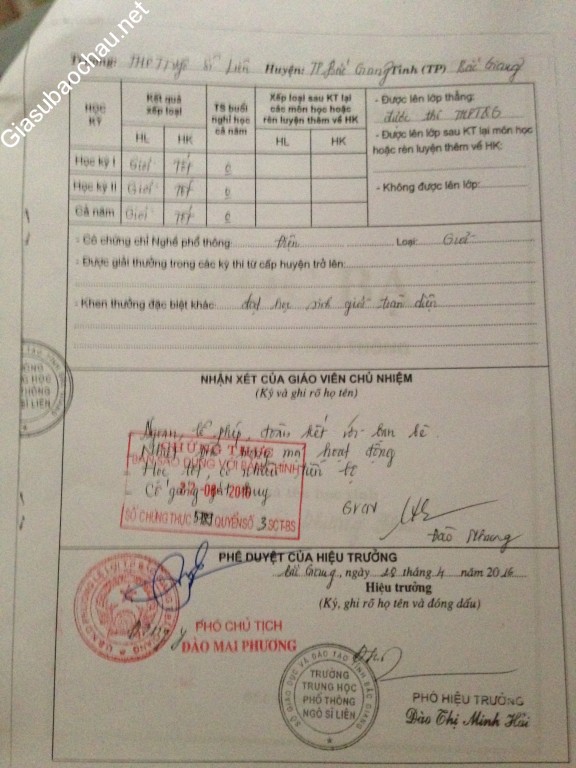 Giasubaochau.net
Trường: THPT Ngô Sĩ Liên Huyện: TP Bắc Giang Tỉnh (TP) Bắc Giang
HỌC KỲ
Kết quả xếp loại
HL
HK
TS buổi nghỉ học cả năm
Xếp loại sau KT lại các môn học hoặc rèn luyện thêm về HK
HL
HK
- Được lên lớp thẳng:
- Được lên lớp sau KT lại môn học hoặc rèn luyện thêm về HK:
- Không được lên lớp:
Học kỳ I Giỏi Tốt 0
Học kỳ II Giỏi Tốt 0
Cả năm Giỏi Tốt 0
- Có chứng chỉ Nghề phổ thông: Điện Loại: Giỏi
- Được giải thưởng trong các kỳ thi từ cấp huyện trở lên:
- Khen thưởng đặc biệt khác: đạt học sinh giỏi toàn diện
NHẬN XÉT CỦA GIÁO VIÊN CHỦ NHIỆM
(Ký và ghi rõ họ tên)
Ngoan, lễ phép, đoàn kết với bạn bè
mọi hoạt động
Học tốt, có nhiều tiến bộ
Cố gắng phát huy
CHỨNG THỰC
BẢN SAO ĐÚNG VỚI BẢN CHÍNH
SỐ CHỨNG THỰC QUYỂN SỐ 3 SCT-BS
GVCN
Đào
PHÊ DUYỆT CỦA HIỆU TRƯỞNG
Bắc Giang, ngày 28 tháng 4 năm 2016
Hiệu trưởng
(Ký, ghi rõ họ tên và đóng dấu)
PHÓ CHỦ TỊCH
ĐÀO MAI PHƯƠNG
SỞ GIÁO DỤC VÀ ĐÀO TẠO TỈNH BẮC GIANG
TRƯỜNG
TRUNG HỌC
PHỔ THÔNG
NGÔ SĨ LIÊN
PHÓ HIỆU TRƯỞNG
Đào Thị Minh Hải